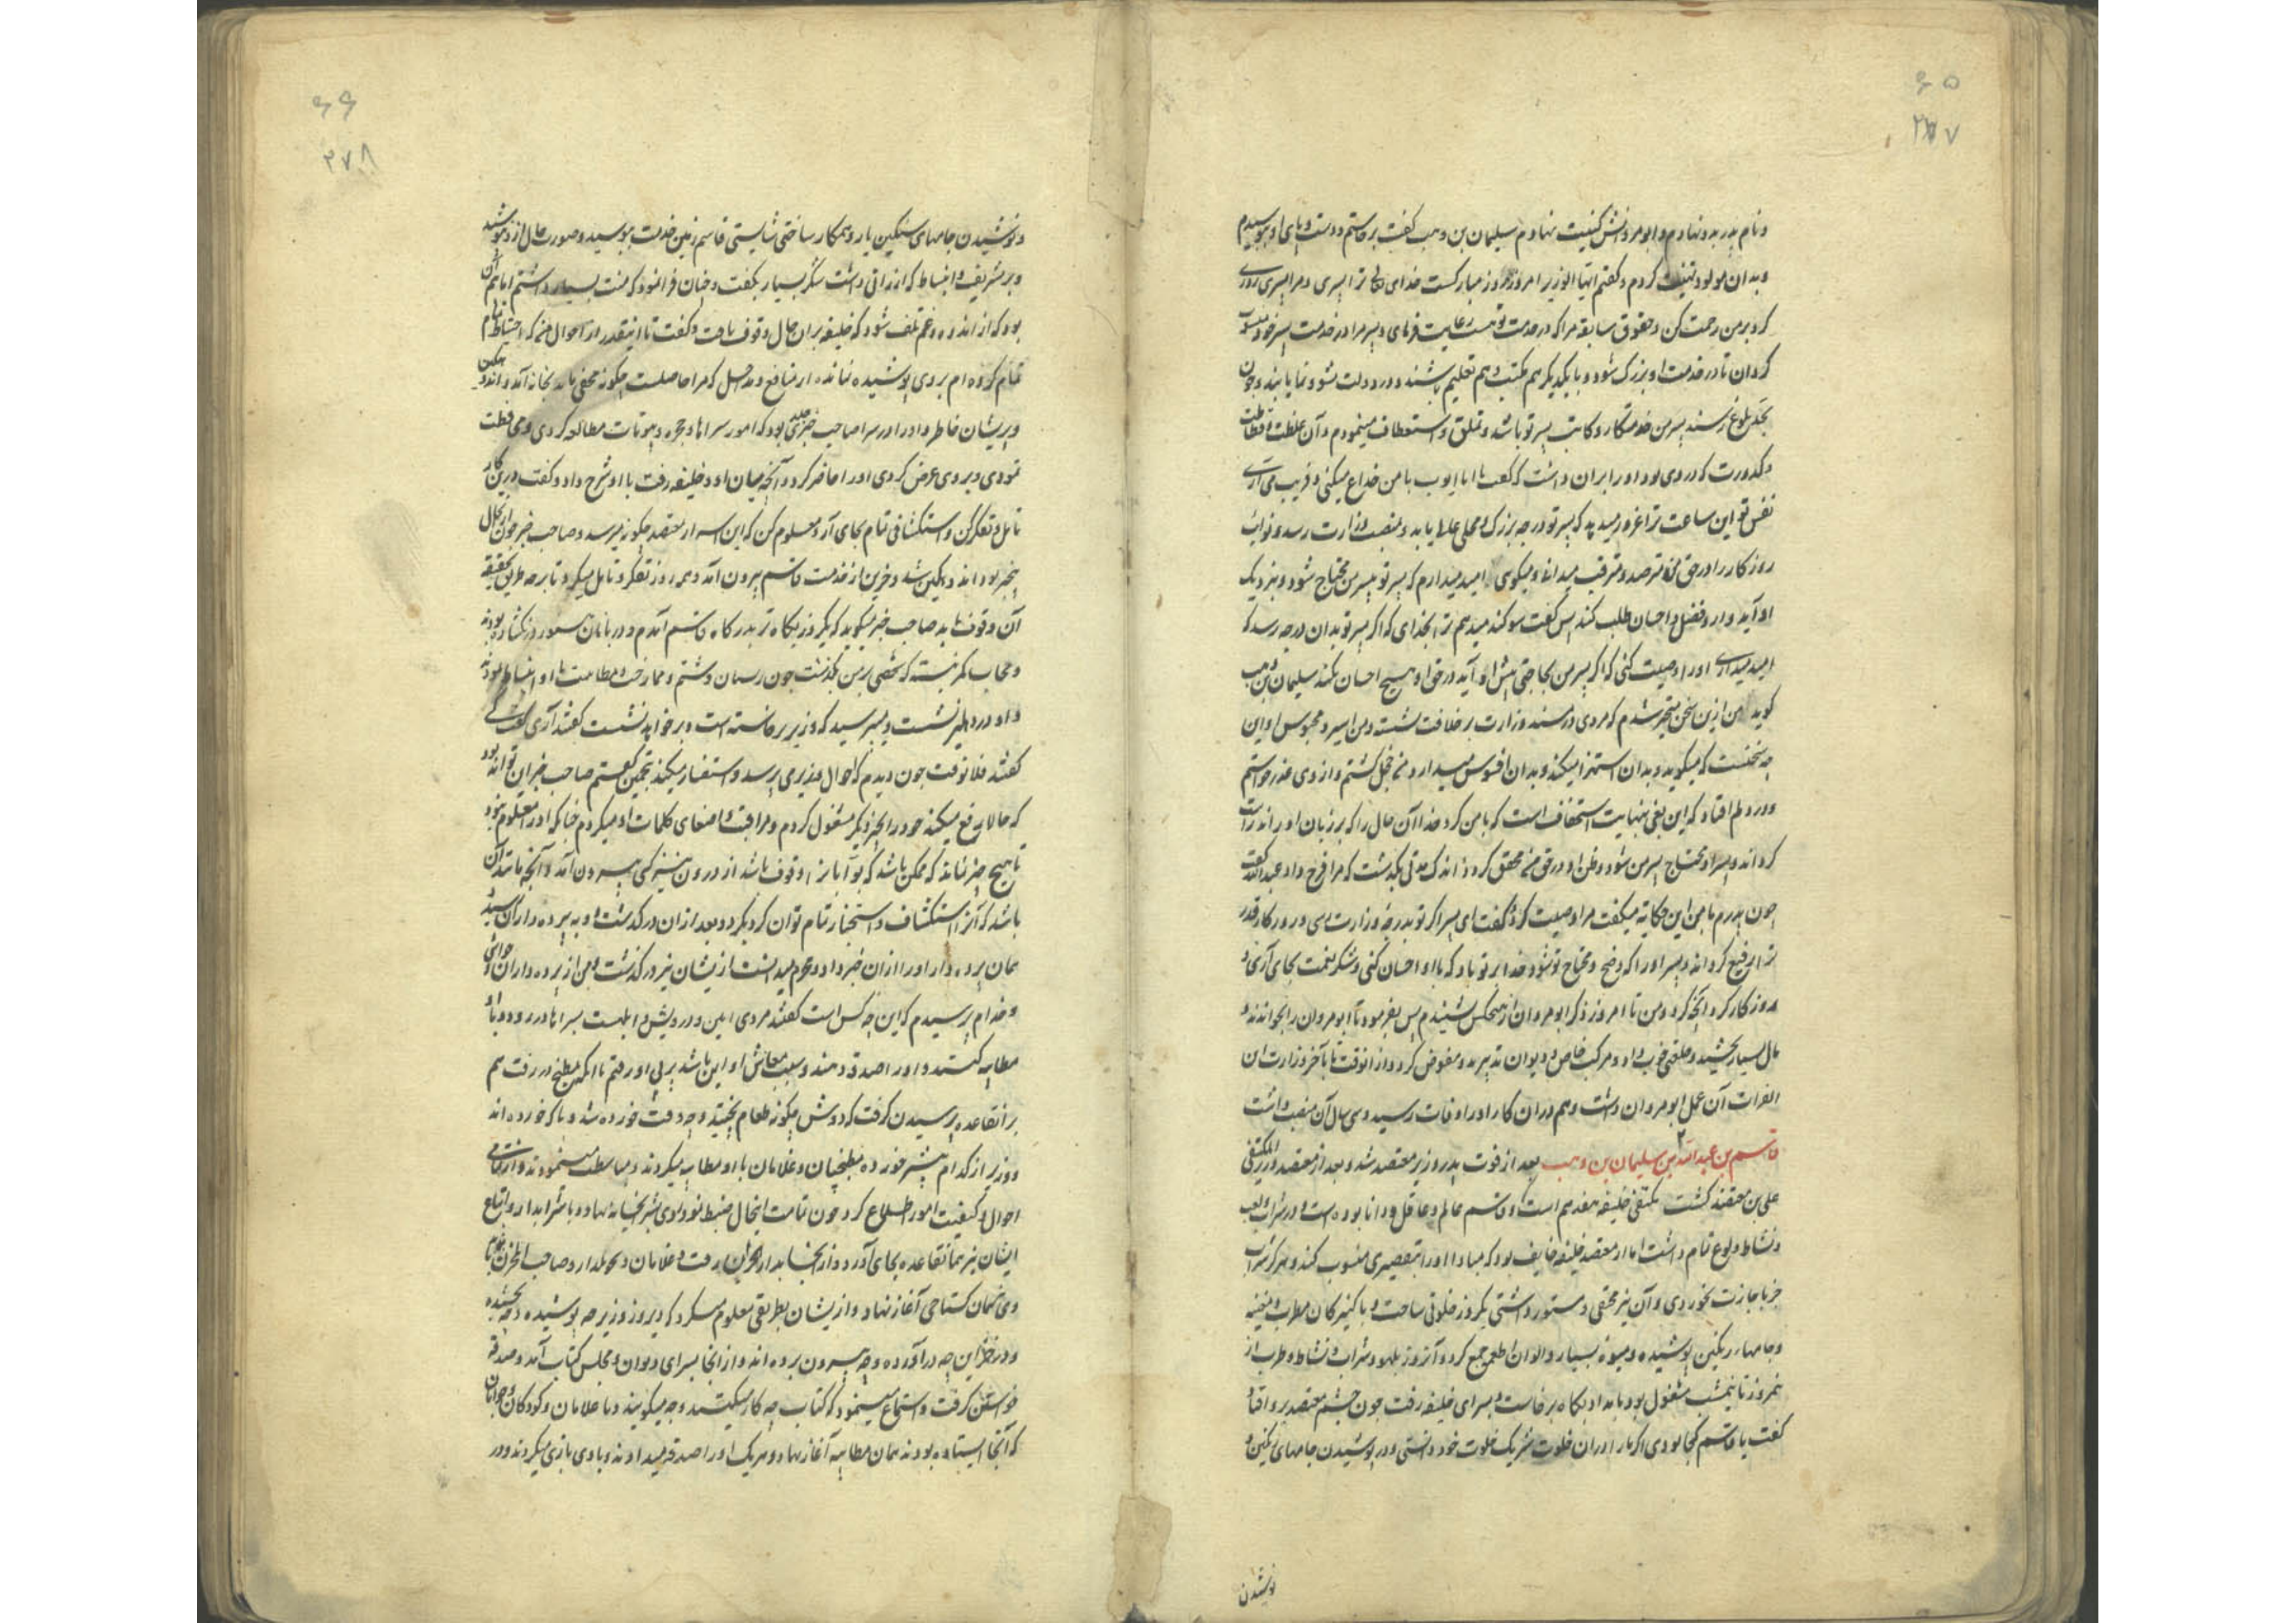 ۶۵
۲۷۷
و نام پدر بدو نهادم و ابو مروانش کنیت نهادم سلیمان بن وهب گفت برخاستم و دست و پای او ببوسیدم
و بدان مولود تهنیت کردم و گفتم ایها الوزیر امروز روز مبارکست خدای ترا پسری و مرا پسری روزی
کرد بر من رحمت کن و حقوق سابقه مرا که در خدمت تو هست رعایت فرمای و پسر مرا در خدمت پسر خود منسوب
کردان تا در خدمت او بزرگ شود و با یکدیگر هم مکتب و هم تعلیم باشند و در دولت نشو و نما یابند و چون
بحد بلوغ رسند پسر من خدمتکار و کاتب پسر تو باشد و تملق و استعطاف مینمودم و آن غلظت و فظاظت
و کدورت که در وی بود او را بران داشت که گفت یا ابا ایوب با من خداع میکنی و فریب می آری
نفس تو این ساعت ترا غره که پسر تو درجه بزرگ و محلی عالی یابد و بمنصب وزارت رسد و نوایب
روزکار را در حق من مترصد و مترقب میدانی و میکوی امید میدارم که پسر تو بپسر من محتاج شود و بنزدیک
او آید و از و فضل و احسان طلب کند پس گفت سوکند میدهم ترا بخدای که اگر پسر تو بدان درجه رسد که
امید میداری او را وصیت کنی که اگر پسر من بحاجتی پیش او آید در حق او هیچ احسان نکند سلیمان بن وهب
کوید من ازین سخن متحیر شدم که مردی در مسند وزارت بر خلافت نشسته و من اسیر و محبوس او این
چه سخنست که میکوید و بدان استهزا میکند و بدان افسوس میدارد من خجل گشتم و از وی عذر خواستم
و در دلم افتاد که این بغی بنهایت استخفاف است که با من کرد خدا آن حال را که بر زبان او راند راست
کرداند و پسر او محتاج پسر من شود و ظن او در حق من محقق کرد اندک مدتی بگذشت که مرا فرج داد عبدالله گفت
چون پدرم با من این حکایت میکفت مرا وصیت کرد و گفت ای پسر اگر تو بدرجه وزارت رسی و روزکار قدر
ترا رفیع کرداند و پسر او را که وضیع و محتاج تو شود خدا بر تو باد که با او احسان کنی و شکر نعمت بجای آری
روزکار کرد آنچه کرد و من تا امروز ذکر ابو مروان از هیچکس نشنیدم پس بفرمود تا ابو مروان را بخواندند و
مال بسیار بخشید و خلعتی خوب داد و مرکب خاص و دیوان تدبیر بدو مفوض کرد و از آنوقت تا بآخر وزارت ابن
الفرات آن عمل ابو مروان داشت و هم دران کار او را وفات رسید و سی سال آن منصب داشت
قاسم بن عبدالله بن سلیمان بن وهب بعد از فوت پدر وزیر معتضد شد و بعد از معتضد وزیر المکتفی
علی بن معتضد گشت مکتفی خلیفه هفدهم است و قاسم عالم و عاقل و دانا بوده است و در شراب و لعب
و نشاط ولوع تمام داشت اما از معتضد خلیفه خایف بود که مبادا او را بتقصیری منسوب کند و هرگز شراب
جز باجازت نخوردی و آن نیز مخفی و مستور داشتی یکروز خلوتی ساخت و با کنیزکان مطرب و مغنیه
و جامهاء رنگین پوشیده و میوه بسیار و الوان اطعمه جمع کرد و آنروز بلهو و شراب و نشاط و طرب از
نیمروز تا نیمشب مشغول بود بامداد پکاه برخاست و بسرای خلیفه رفت چون چشم معتضد بر و افتاد
گفت یا قاسم کجا بودی اگر ما را دران خلوت شریک خلوت خود داشتی و در پوشیدن جامهای رنگین و
پوشیدن
۶۶
۲۷۸
و پوشیدن جامهای سنگین یار و همکار ساختی شایستی قاسم زمین خدمت ببوسید و صورت حال ازو بپوشید
و بر تشریف و انبساط که ارزانی داشت شکر بسیار بگفت و چنان فرا نمود که منت بسیار داشتم اما بیم آن
بود که از اندوه و غم تلف شود که خلیفه بران حال وقوف یافت و گفت تا اینقدر از احوال من که احتیاط تمام
تمام کرده ام بر وی پوشیده نمانده از منافع و مداخل که مرا حاصلست چکونه مخفی ماند بخانه آمد و اندوهگین
و پریشان خاطر و او را در سرا صاحب خبری بود که امور سراها و حجره و بیوتات مطالعه کردی و محافظت
نمودی و بر وی عرض کردی او را حاضر کرد و آنچه میان او و خلیفه رفت با او شرح داد و گفت درین کار
تامل و تفکر کن و استکشافی تمام بجای آر و معلوم کن که این اسرار بمعتضد چکونه میرسد و صاحب خبر چون ازین حال
بیخبر بود اندوهگین شد و حزین از خدمت قاسم بیرون آمد و همه روز تفکر و تامل میکرد تا بر چه طریق بحقیقت
آن وقوف یابد صاحب خبر میکوید که یکروز پکاه تر بدرگاه قاسم آمدم و دربانان هنوز در نگشاده بودند
و حجاب کمر نبسته که شخصی بر من بگذشت چون
و او در دهلیز نشست و میپرسید که وزیر برخاسته است و بر خوابد نشست گفتند آری
گفتند فلانوقت چون دیدم که احوال وزیر می پرسد و استفسار میکند بتخمین گفتم صاحب خبر این تواند بود
که حالات رفع میکند خود را بچیز دیگر مشغول کردم و مراقبت و اصغای کلمات او میکردم چنانکه او را معلوم نبود
تا هیچ چیز نماند که ممکن باشد که بوابان را وقوف باشد از درون نیز کی بیرون آمد و آنچه مانند آن
باشد که آنرا استکشاف و استخبار تمام توان کرد بکرد و بعد از آن در گذشت و به پرده داران رسید
همان پرده دار او را از آن خبر داد و هرچه میدانست ازیشان نیز در گذشت و من از پرده داران و حواشی
و خدام پرسیدم که این چه کس است گفتند مردی است درویش و ابله است بسراها در رود و با او
مطایبه کنند و او را صدقه دهند و سبب معاش او این باشد بر پی او رفتم تا آنکه بمطبخ در رفت هم
بر آنقاعده پرسیدن گرفت که دوش چکونه طعام پختید و چه وقت خورده شد و با که خورده اند
و وزیر از کدام بیشتر خورده مطبخیان و غلامان با او مطایبه میکردند و مباسطت مینمودند و از تمامی
احوال و کیفیت امور اطلاع کرد چون تمامت آنحال ضبط نمود روی بشرابخانه نهاد و با شرابدار و اتباع
ایشان نیز همانقاعده بجای آورد و از آنجا بدار الخزن رفت و غلامان و تحویلدار و صاحب الخزن
وی همان گستاخی آغاز نهاد و ازیشان بطریقی معلوم میکرد که دیروز وزیر چه پوشیده و چه بخشیده
و در خزاین چه درآورده و چه بیرون برده اند و از آنجا بسرای دیوان و مجلس کتاب آمد و صدقه
خواستن گرفت و استماع مینمود که کتاب چه کار میکنند و چه میکویند و با غلامان و کودکان و جوانان
که آنجا ایستاده بودند همان مطایبه آغاز نهاد و هر یک او را صدقه میدادند و با وی بازی میکردند و در